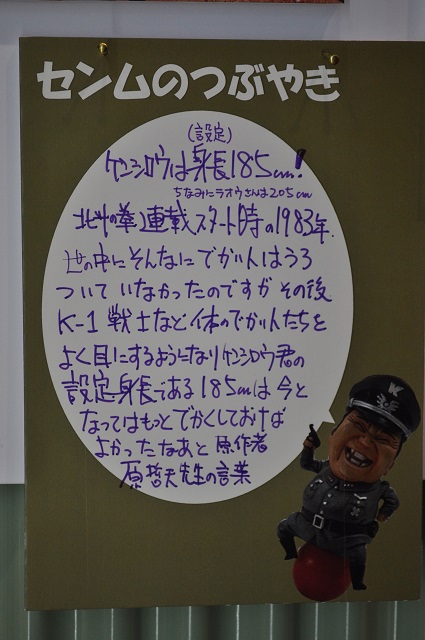 センムのつぶやき
(設定)
ケンシロウは身長185cm!
ちなみにラオウさんは205cm
北斗の拳連載スタート時の1983年、
世の中にそんなにでかい人はうろ
ついていなかったのですが その後
K-1 戦士など体のでかい人たちを
よく目にするようになりケンシロウ君の
設定身長である185cmは今と
なってはもっとでかくしておけば
よかったなあと原作者
原哲夫先生の言葉
K